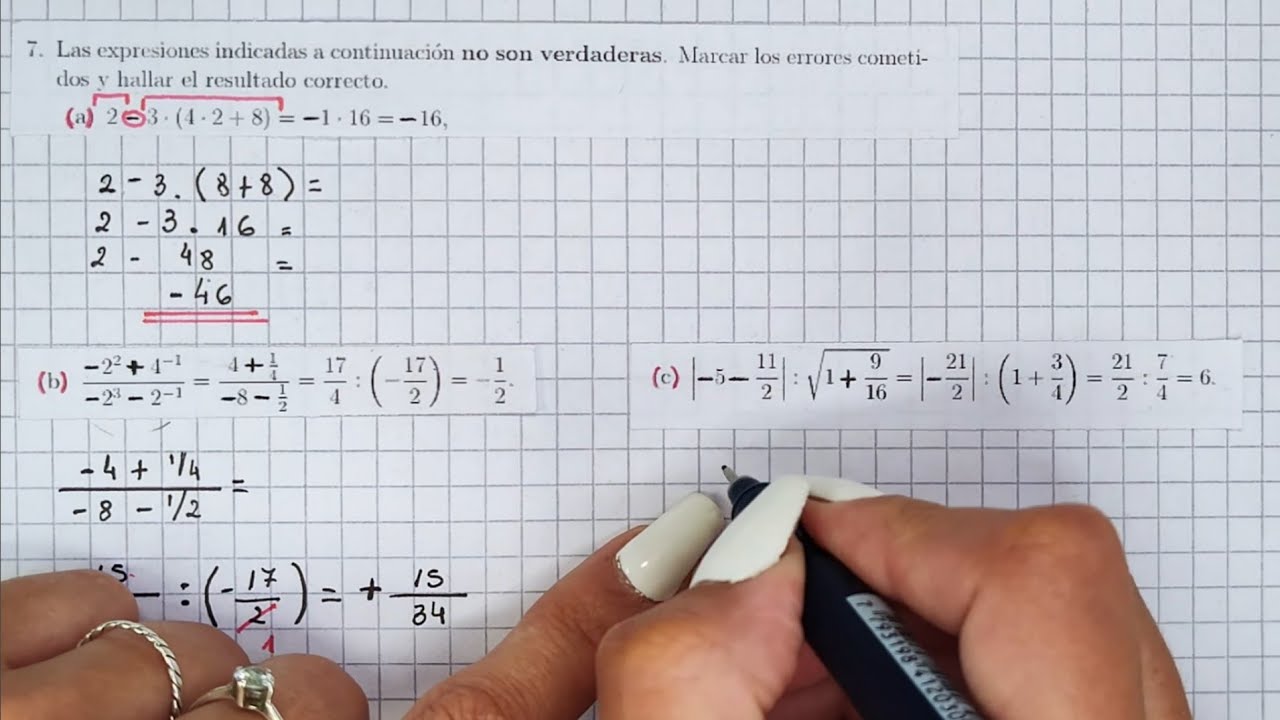 7. Las expresiones indicadas a continuación no son verdaderas. Marcar los errores cometi-
dos y hallar el resultado correcto.
(a) 2 − 3 · (4 · 2 + 8) = −1 · 16 = −16,
2 - 3 . (8 + 8) =
2 - 3 . 16 =
2 - 48 =
- 46
(b) (−2² + 4⁻¹)/(−2³ − 2⁻¹) = (4 + 1/4)/(−8 − 1/2) = 17/4 : (−17/2) = −1/2.
(c) |−5 − 11/2| : √(1 + 9/16) = |−21/2| : (1 + 3/4) = 21/2 : 7/4 = 6.
(- 4 + 1/4)/(- 8 - 1/2) =
: (- 17/2) = + 15/34
1